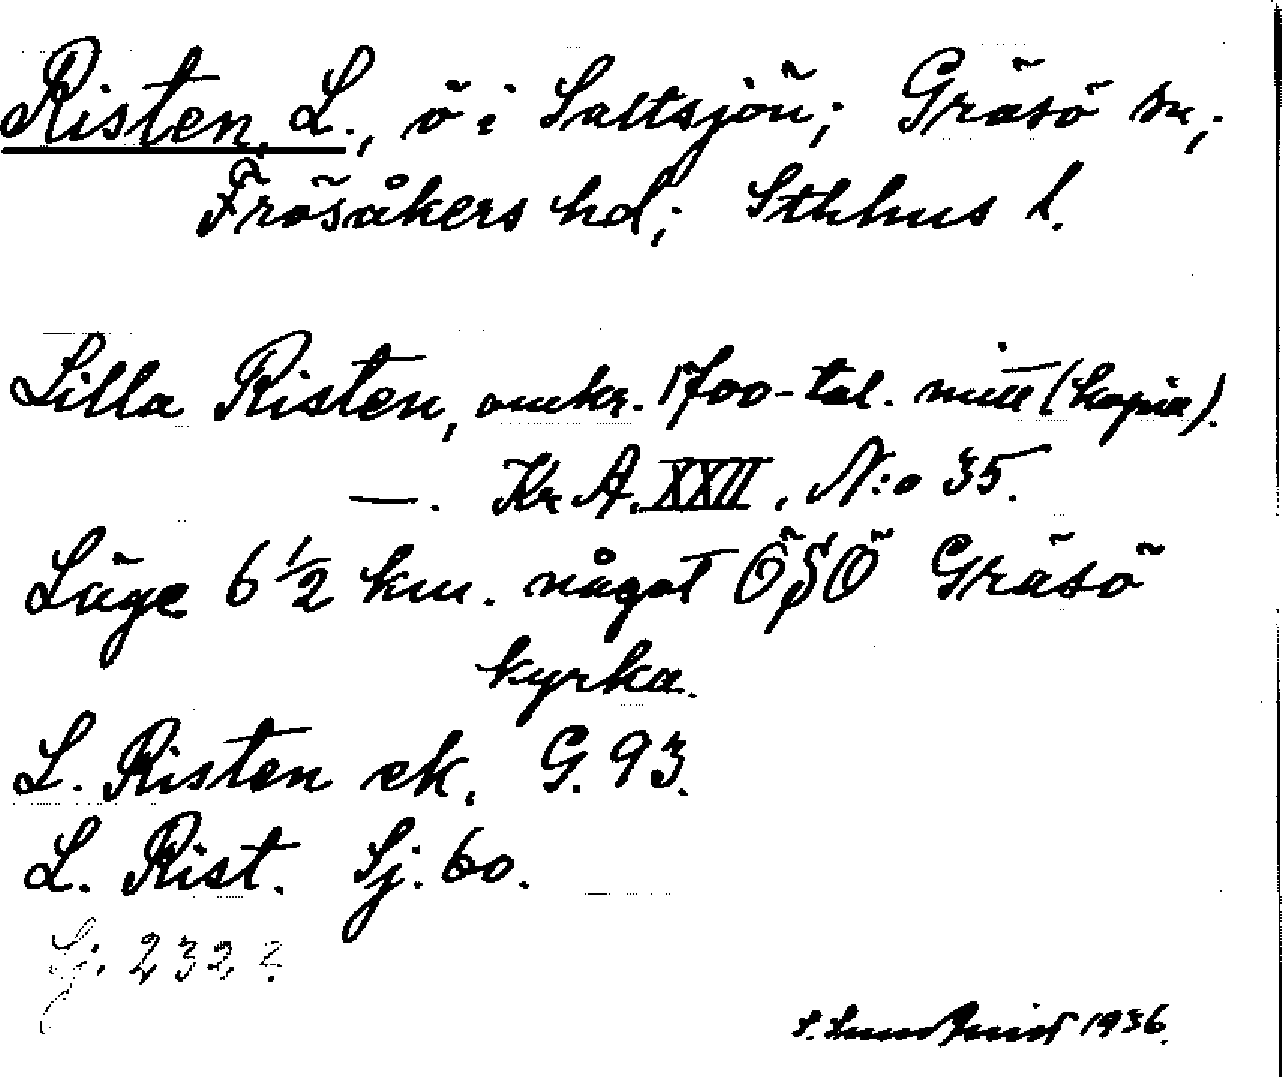 Risten, L., ö i Saltsjön; Gräsö sn,
Frösåkers hd; Sthlms l.
Lilla Risten, omkr. 1700-tal. mitt (kopia).
—. Kr. A. XXII. N:o 35.
Läge 6 1/2 km. något ÖSÖ Gräsö
kyrka.
L. Risten ek. G. 93.
L. Rist. Sj. 60.
Sj. 232 2
S. Lundkvist 1936.